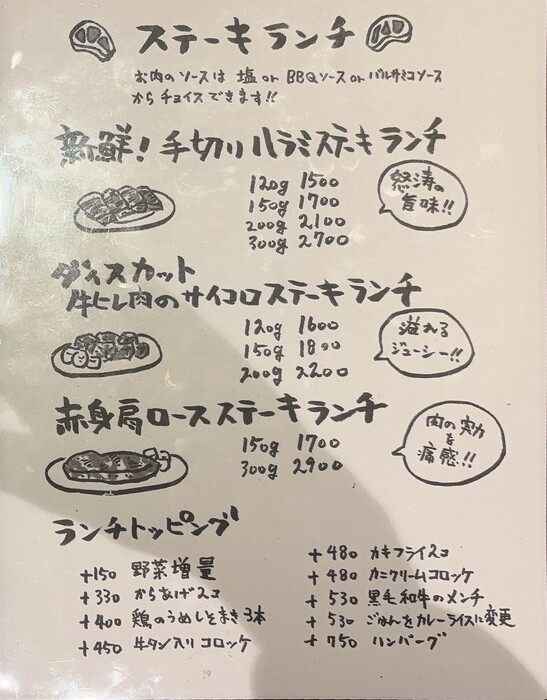 ステーキランチ
お肉のソースは 塩 or BBQソース or バルサミコソース
からチョイスできます!!
新鮮! 手切りハラミステーキランチ
120g 1500
150g 1700
200g 2100
300g 2700
怒涛の
旨味!!
ダイスカット
牛ヒレ肉のサイコロステーキランチ
120g 1600
150g 1800
200g 2200
溢れる
ジューシー!!
赤身肩ロースステーキランチ
150g 1700
300g 2900
肉の実力
を
痛感!!
ランチトッピング
+150 野菜増量
+330 からあげ2コ
+400 鶏のうめしそまき3本
+450 牛タン入りコロッケ
+480 カキフライ2コ
+480 カニクリームコロッケ
+530 黒毛和牛のメンチ
+530 ごはんをカレーライスに変更
+750 ハンバーグ